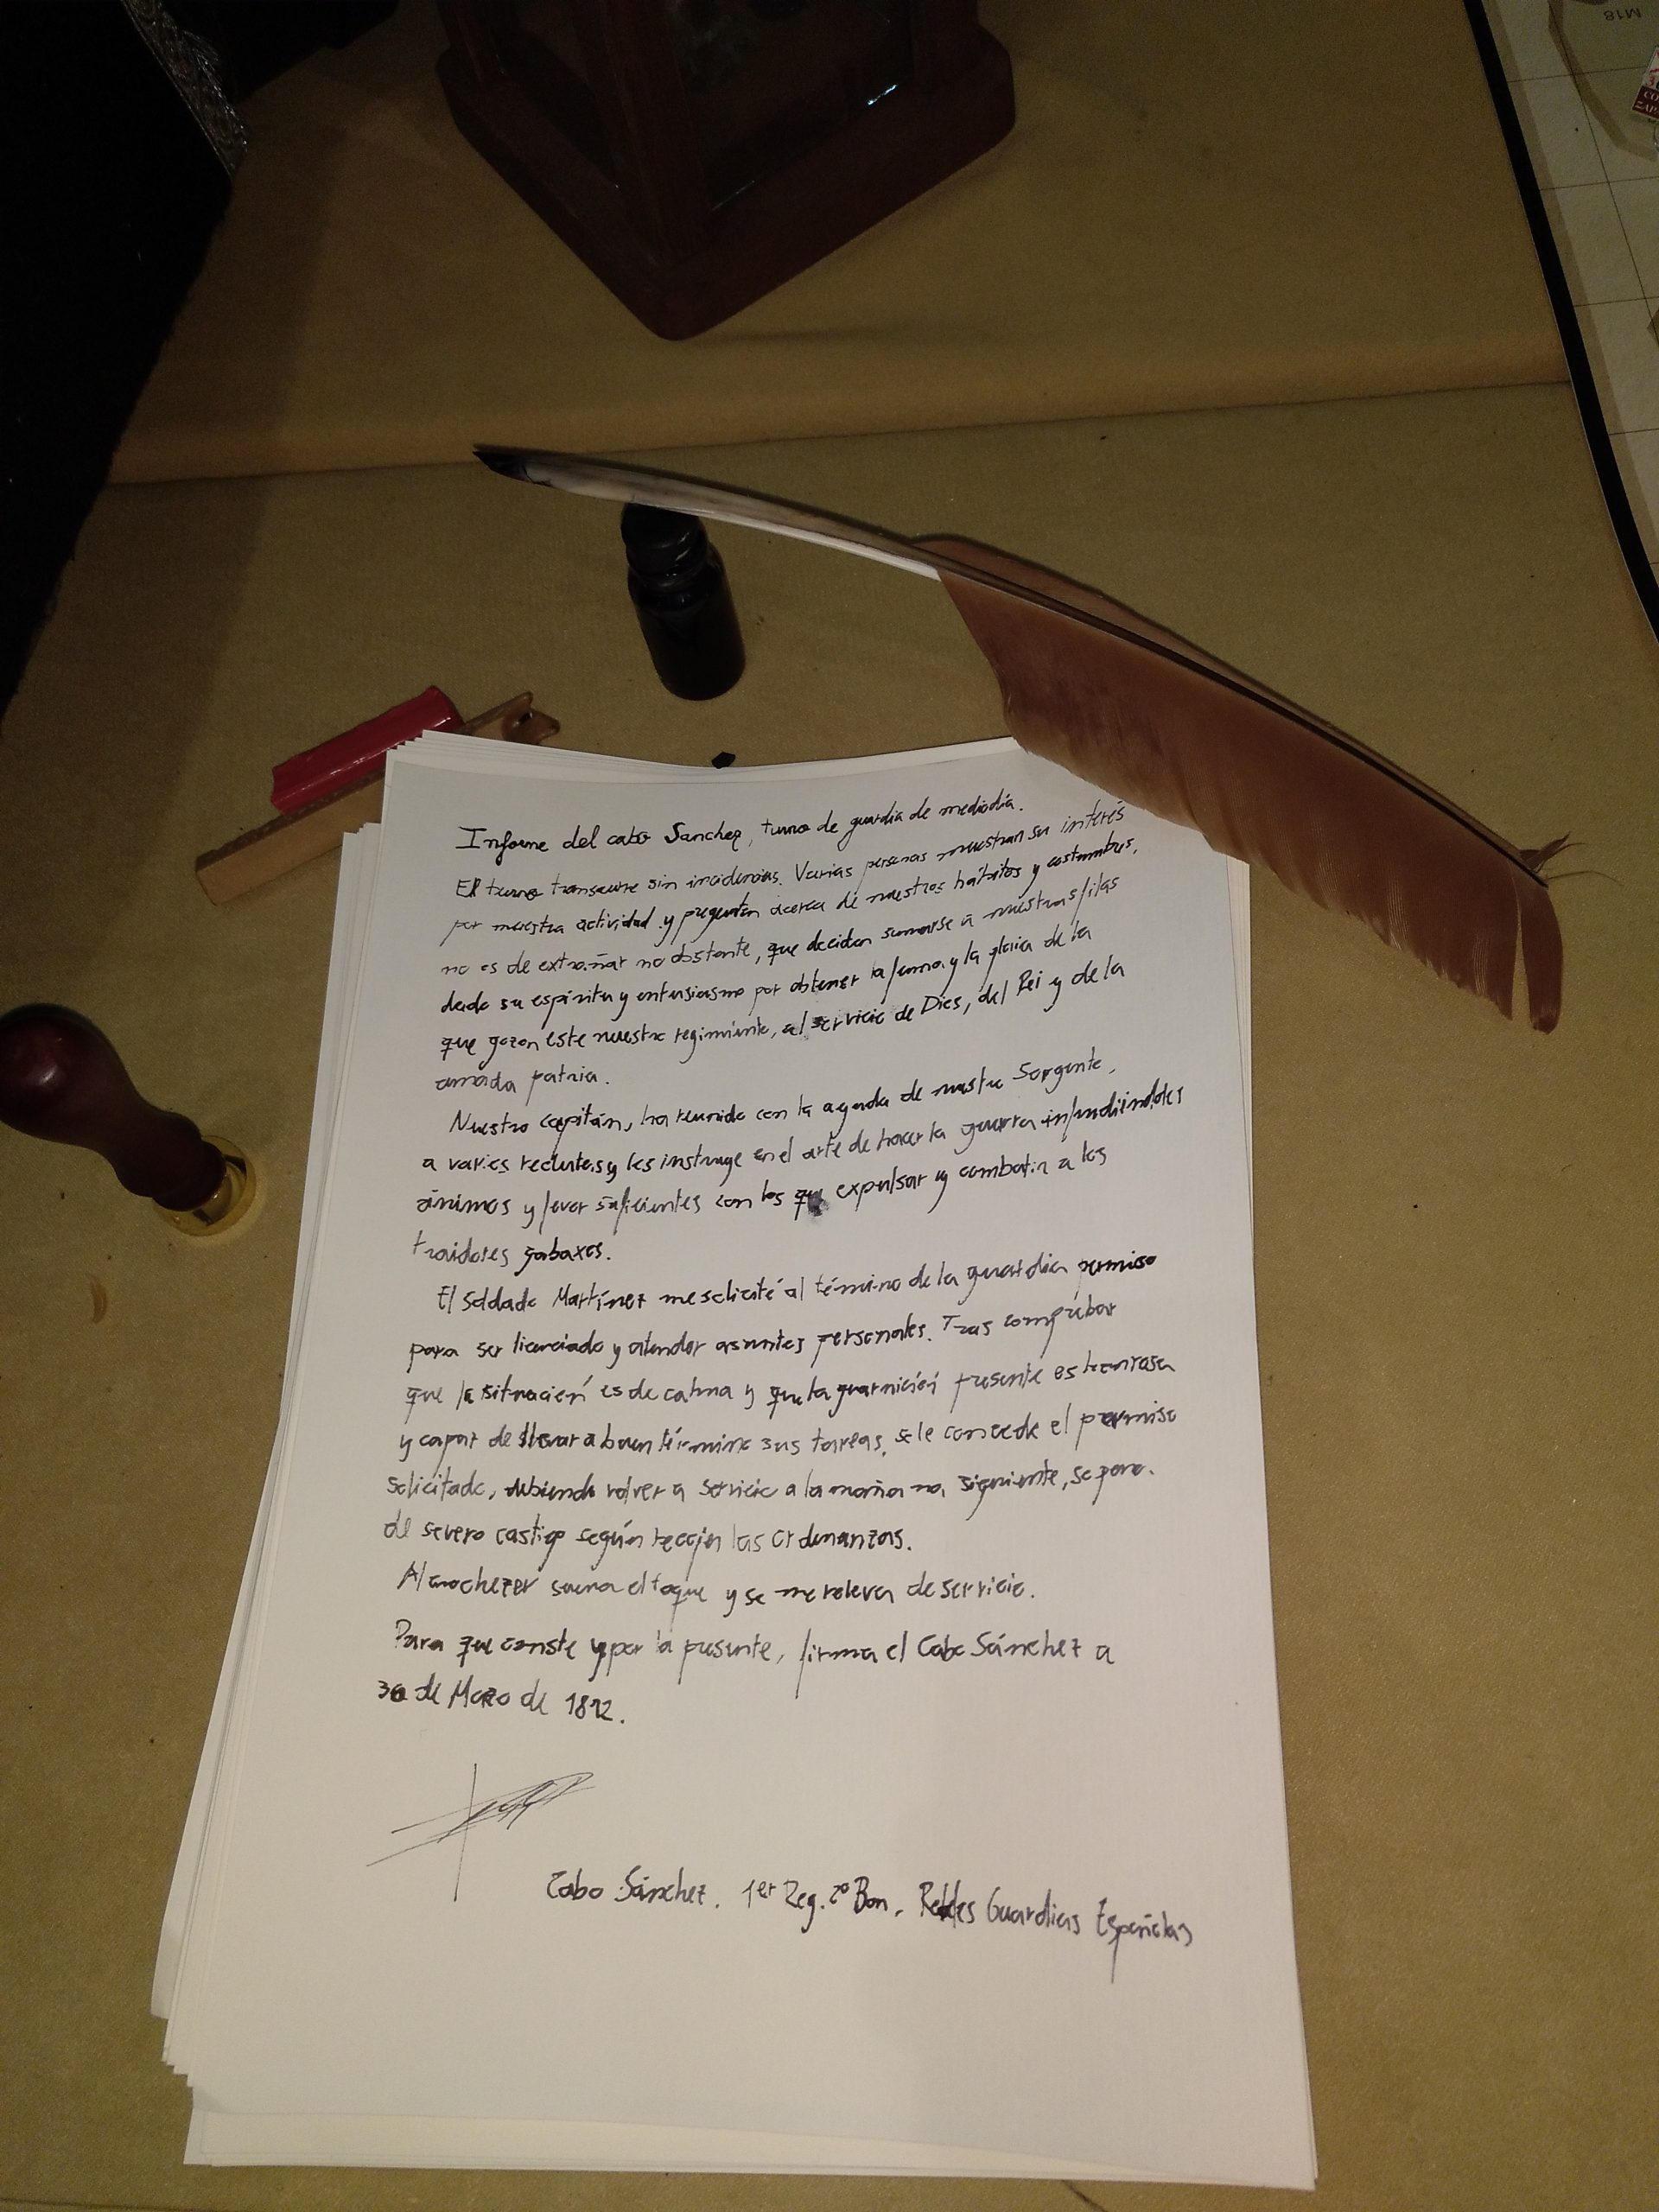 M18
Informe del cabo Sanchez, turno de guardia de mediodía.
El turno transcurre sin incidencias. Varias personas muestran su interés
por nuestra actividad y preguntan acerca de nuestros hábitos y costumbres,
no es de extrañar no obstante, que decidan sumarse a nuestras filas
dado su espíritu y entusiasmo por obtener la fama y la gloria de la
que gozan este nuestro regimiento, al servicio de Dios, del Rei y de la
amada patria.
Nuestro capitán, ha reunido con la ayuda de nuestro Sargento,
a varios reclutas y les instruye en el arte de hacer la guerra infundiéndoles
ánimos y favor suficientes con los que expulsar y combatir a los
traidores gabaxos.
El soldado Martínez me solicitó al término de la guardia permiso
para ser licenciado y atender asuntos personales. Tras comprobar
que la situación es de calma y que la guarnición presente es honrosa
y capaz de llevar a buen término sus tareas, se le concede el permiso
solicitado, debiendo volver a servicio a la mañana siguiente, so pena
de severo castigo según recojen las ordenanzas.
Al anochezer suena el toque y se me releva de servicio.
Para que conste y por la presente, firma el Cabo Sánchez a
30 de Marzo de 1812.
Cabo Sánchez. 1er Reg. 2º Bon, Reales Guardias Españolas